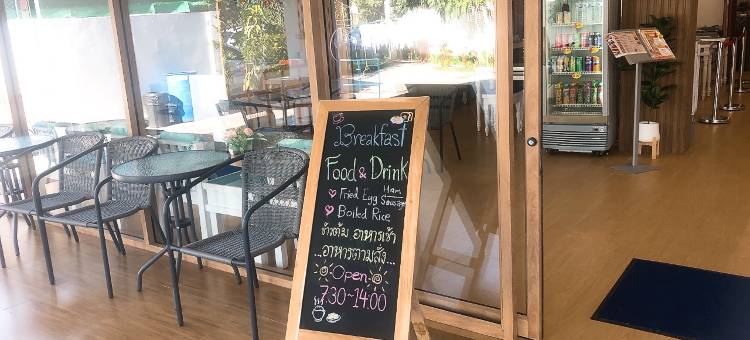 Breakfast
Food & Drink
Fried Egg Ham Sausage
Boiled Rice
ข้าวต้ม อาหารเช้า
...อาหารตามสั่ง...
Open
7.30~14.00